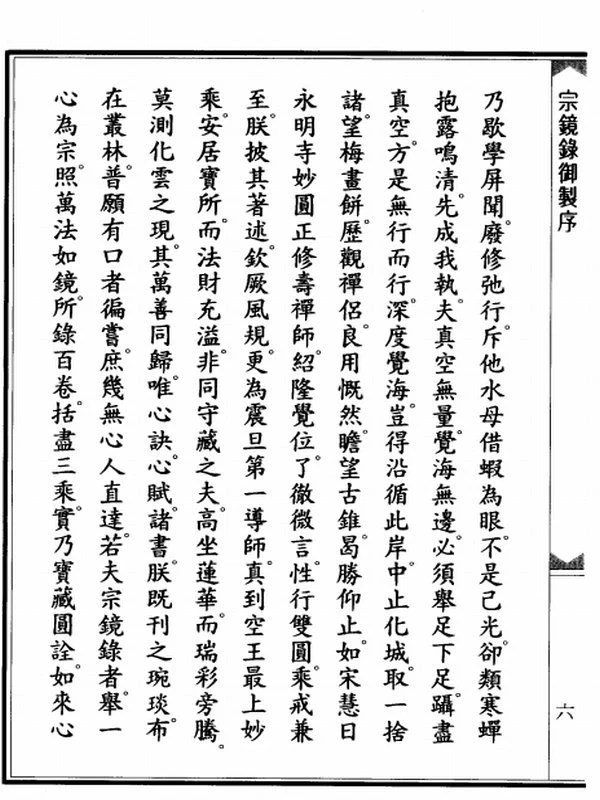 宗鏡錄御製序
六
乃歇學屏聞。廢修弛行。斥他水母借蝦為眼。不是己光。卻類寒蟬
抱露鳴清。先成我執。夫真空無量。覺海無邊。必須舉足下足。躡盡
真空。方是無行而行。深度覺海。豈得沿循此岸。中止化城。取一捨
諸。望梅畫餅。歷觀禪侶。良用慨然。瞻望古錐。曷勝仰止。如宋慧日
永明寺妙圓正修壽禪師。紹隆覺位。了徹微言。性行雙圓。乘戒兼
至。朕披其著述。欽厥風規。更為震旦第一導師。真到空王最上妙
乘。安居寶所。而法財充溢。非同守藏之夫。高坐蓮華。而瑞彩旁騰。
莫測化雲之現。其萬善同歸。唯心訣。心賦。諸書。朕既刊之琬琰。布
在叢林。普願有口者徧嘗。庶幾無心人直達。若夫宗鏡錄者。舉一
心為宗。照萬法如鏡。所錄百卷。括盡三乘。實乃寶藏圓詮。如來心